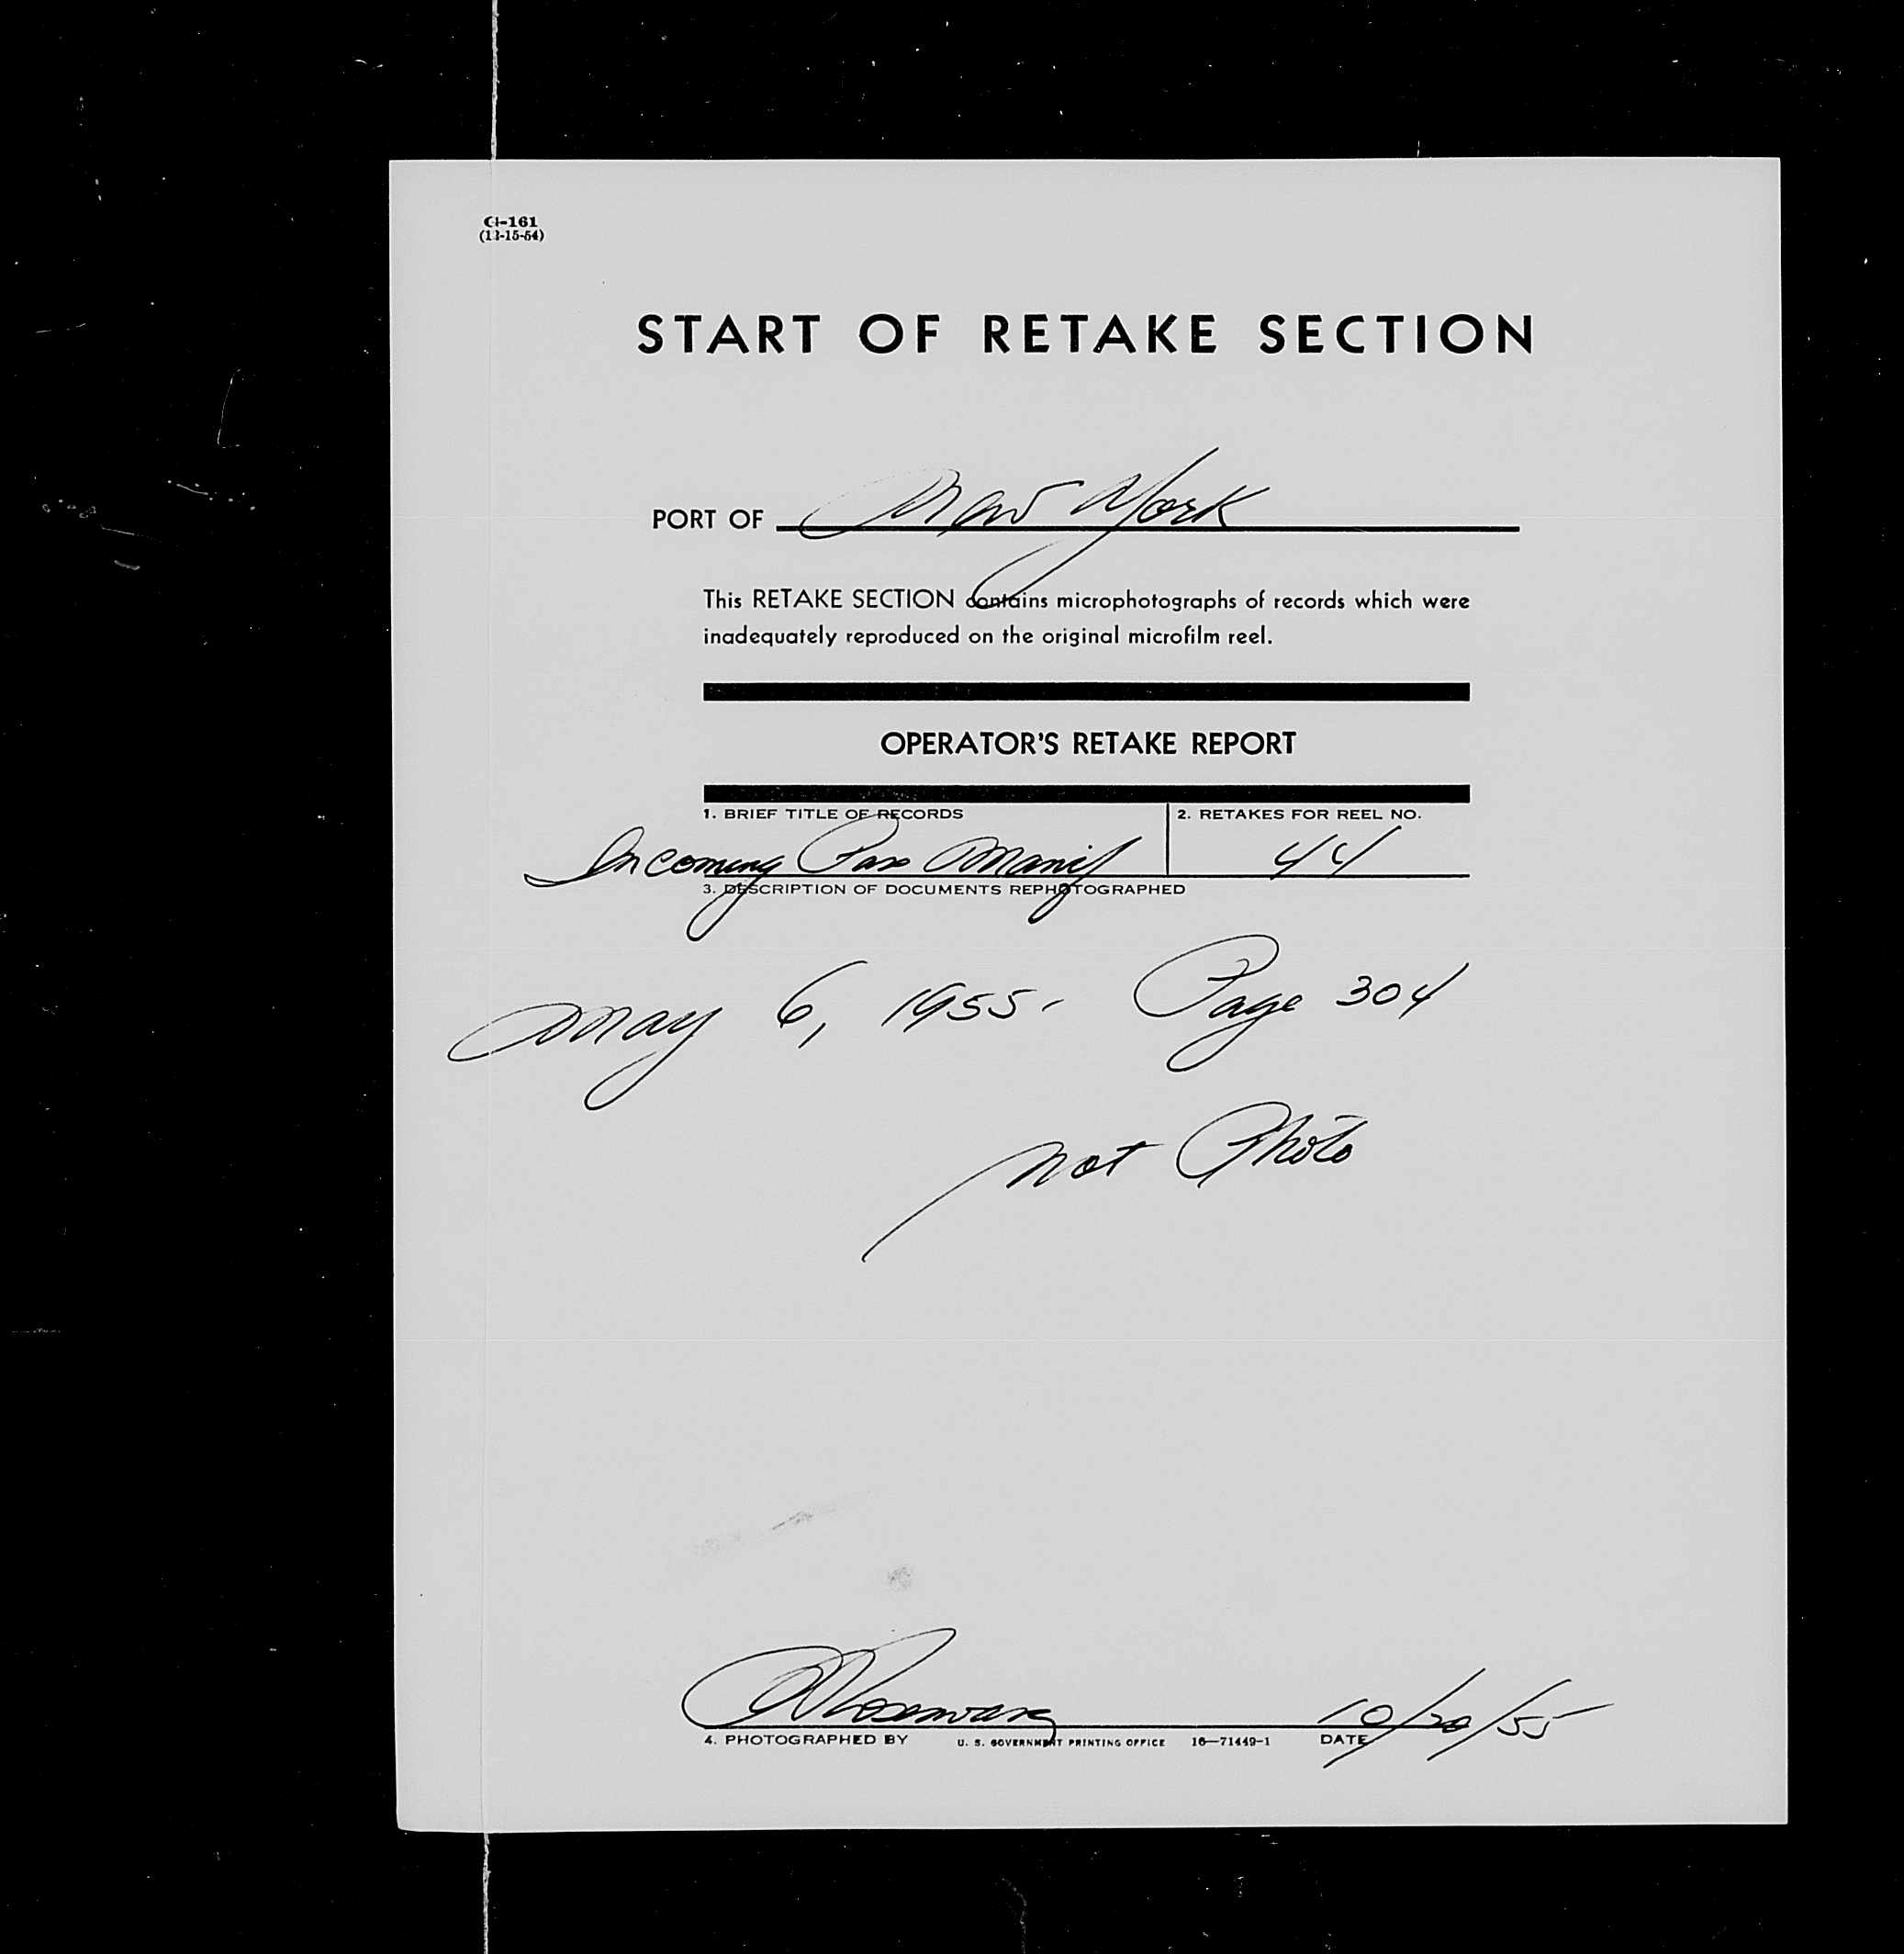 (11-15-54)
START OF RETAKE SECTION
PORT OF New York
This RETAKE SECTION contains microphotographs of records which were
inadequately reproduced on the original microfilm reel.
OPERATOR'S RETAKE REPORT
1. BRIEF TITLE OF RECORDS 2. RETAKES FOR REEL NO.
Incoming Pas Manif 44
3. DESCRIPTION OF DOCUMENTS REPHOTOGRAPHED
May 6, 1955. Page 304
not Photo
10/20/55
4. PHOTOGRAPHED BY U. S. GOVERNMENT PRINTING OFFICE 16—71449-1 DATE